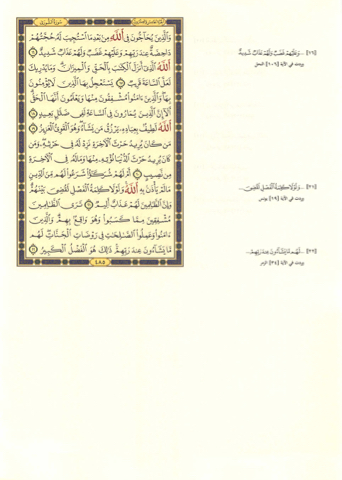 وَالَّذِينَ يُحَاجُّونَ فِي اللَّهِ مِن بَعْدِ مَا اسْتُجِيبَ لَهُ حُجَّتُهُمْ
دَاحِضَةٌ عِندَ رَبِّهِمْ وَعَلَيْهِمْ غَضَبٌ وَلَهُمْ عَذَابٌ شَدِيدٌ ١٦
اللَّهُ الَّذِي أَنزَلَ الْكِتَابَ بِالْحَقِّ وَالْمِيزَانَ وَمَا يُدْرِيكَ
لَعَلَّ السَّاعَةَ قَرِيبٌ ١٧ يَسْتَعْجِلُ بِهَا الَّذِينَ لَا يُؤْمِنُونَ
بِهَا وَالَّذِينَ ءَامَنُوا مُشْفِقُونَ مِنْهَا وَيَعْلَمُونَ أَنَّهَا الْحَقُّ
أَلَا إِنَّ الَّذِينَ يُمَارُونَ فِي السَّاعَةِ لَفِي ضَلَالٍ بَعِيدٍ ١٨
اللَّهُ لَطِيفٌ بِعِبَادِهِ يَرْزُقُ مَن يَشَاءُ وَهُوَ الْقَوِيُّ الْعَزِيزُ ١٩
مَن كَانَ يُرِيدُ حَرْثَ الْآخِرَةِ نَزِدْ لَهُ فِي حَرْثِهِ وَمَن
كَانَ يُرِيدُ حَرْثَ الدُّنْيَا نُؤْتِهِ مِنْهَا وَمَا لَهُ فِي الْآخِرَةِ
مِن نَّصِيبٍ ٢٠ أَمْ لَهُمْ شُرَكَاءُ شَرَعُوا لَهُم مِّنَ الدِّينِ
مَا لَمْ يَأْذَن بِهِ اللَّهُ وَلَوْلَا كَلِمَةُ الْفَصْلِ لَقُضِيَ بَيْنَهُمْ
وَإِنَّ الظَّالِمِينَ لَهُمْ عَذَابٌ أَلِيمٌ ٢١ تَرَى الظَّالِمِينَ
مُشْفِقِينَ مِمَّا كَسَبُوا وَهُوَ وَاقِعٌ بِهِمْ وَالَّذِينَ
ءَامَنُوا وَعَمِلُوا الصَّالِحَاتِ فِي رَوْضَاتِ الْجَنَّاتِ لَهُم
مَّا يَشَاءُونَ عِندَ رَبِّهِمْ ذَٰلِكَ هُوَ الْفَضْلُ الْكَبِيرُ ٢٢
٤٨٥
[١٦] ...وَعَلَيْهِمْ غَضَبٌ وَلَهُمْ عَذَابٌ شَدِيدٌ
وردت في الآية [١٠٦] النحل
[٢١] ...وَلَوْلَا كَلِمَةُ الْفَصْلِ لَقُضِيَ...
وردت في الآية [١٩] يونس
[٢٢] ...لَهُم مَّا يَشَاءُونَ عِندَ رَبِّهِمْ...
وردت في الآية [٣٤] الزمر